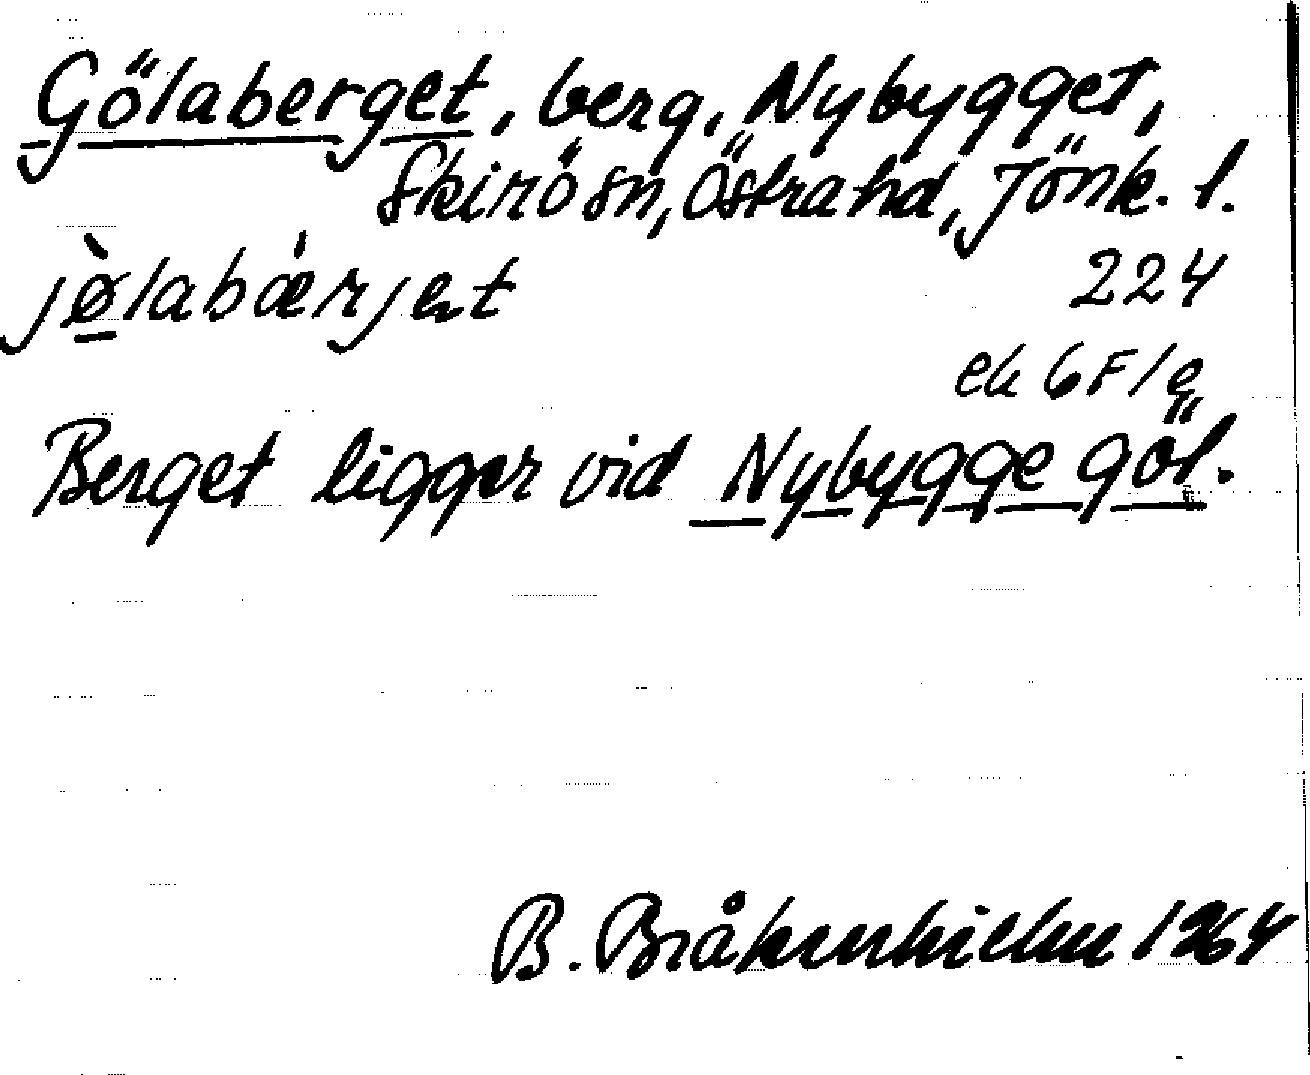 Gölaberget, berg, Nybygget,
Skirö sn, Östra hd, Jönk. l.
jø̀labǽrjet
224
ek 6F1e
Berget ligger vid Nybygge göl.
B. Bråkenhielm 1964